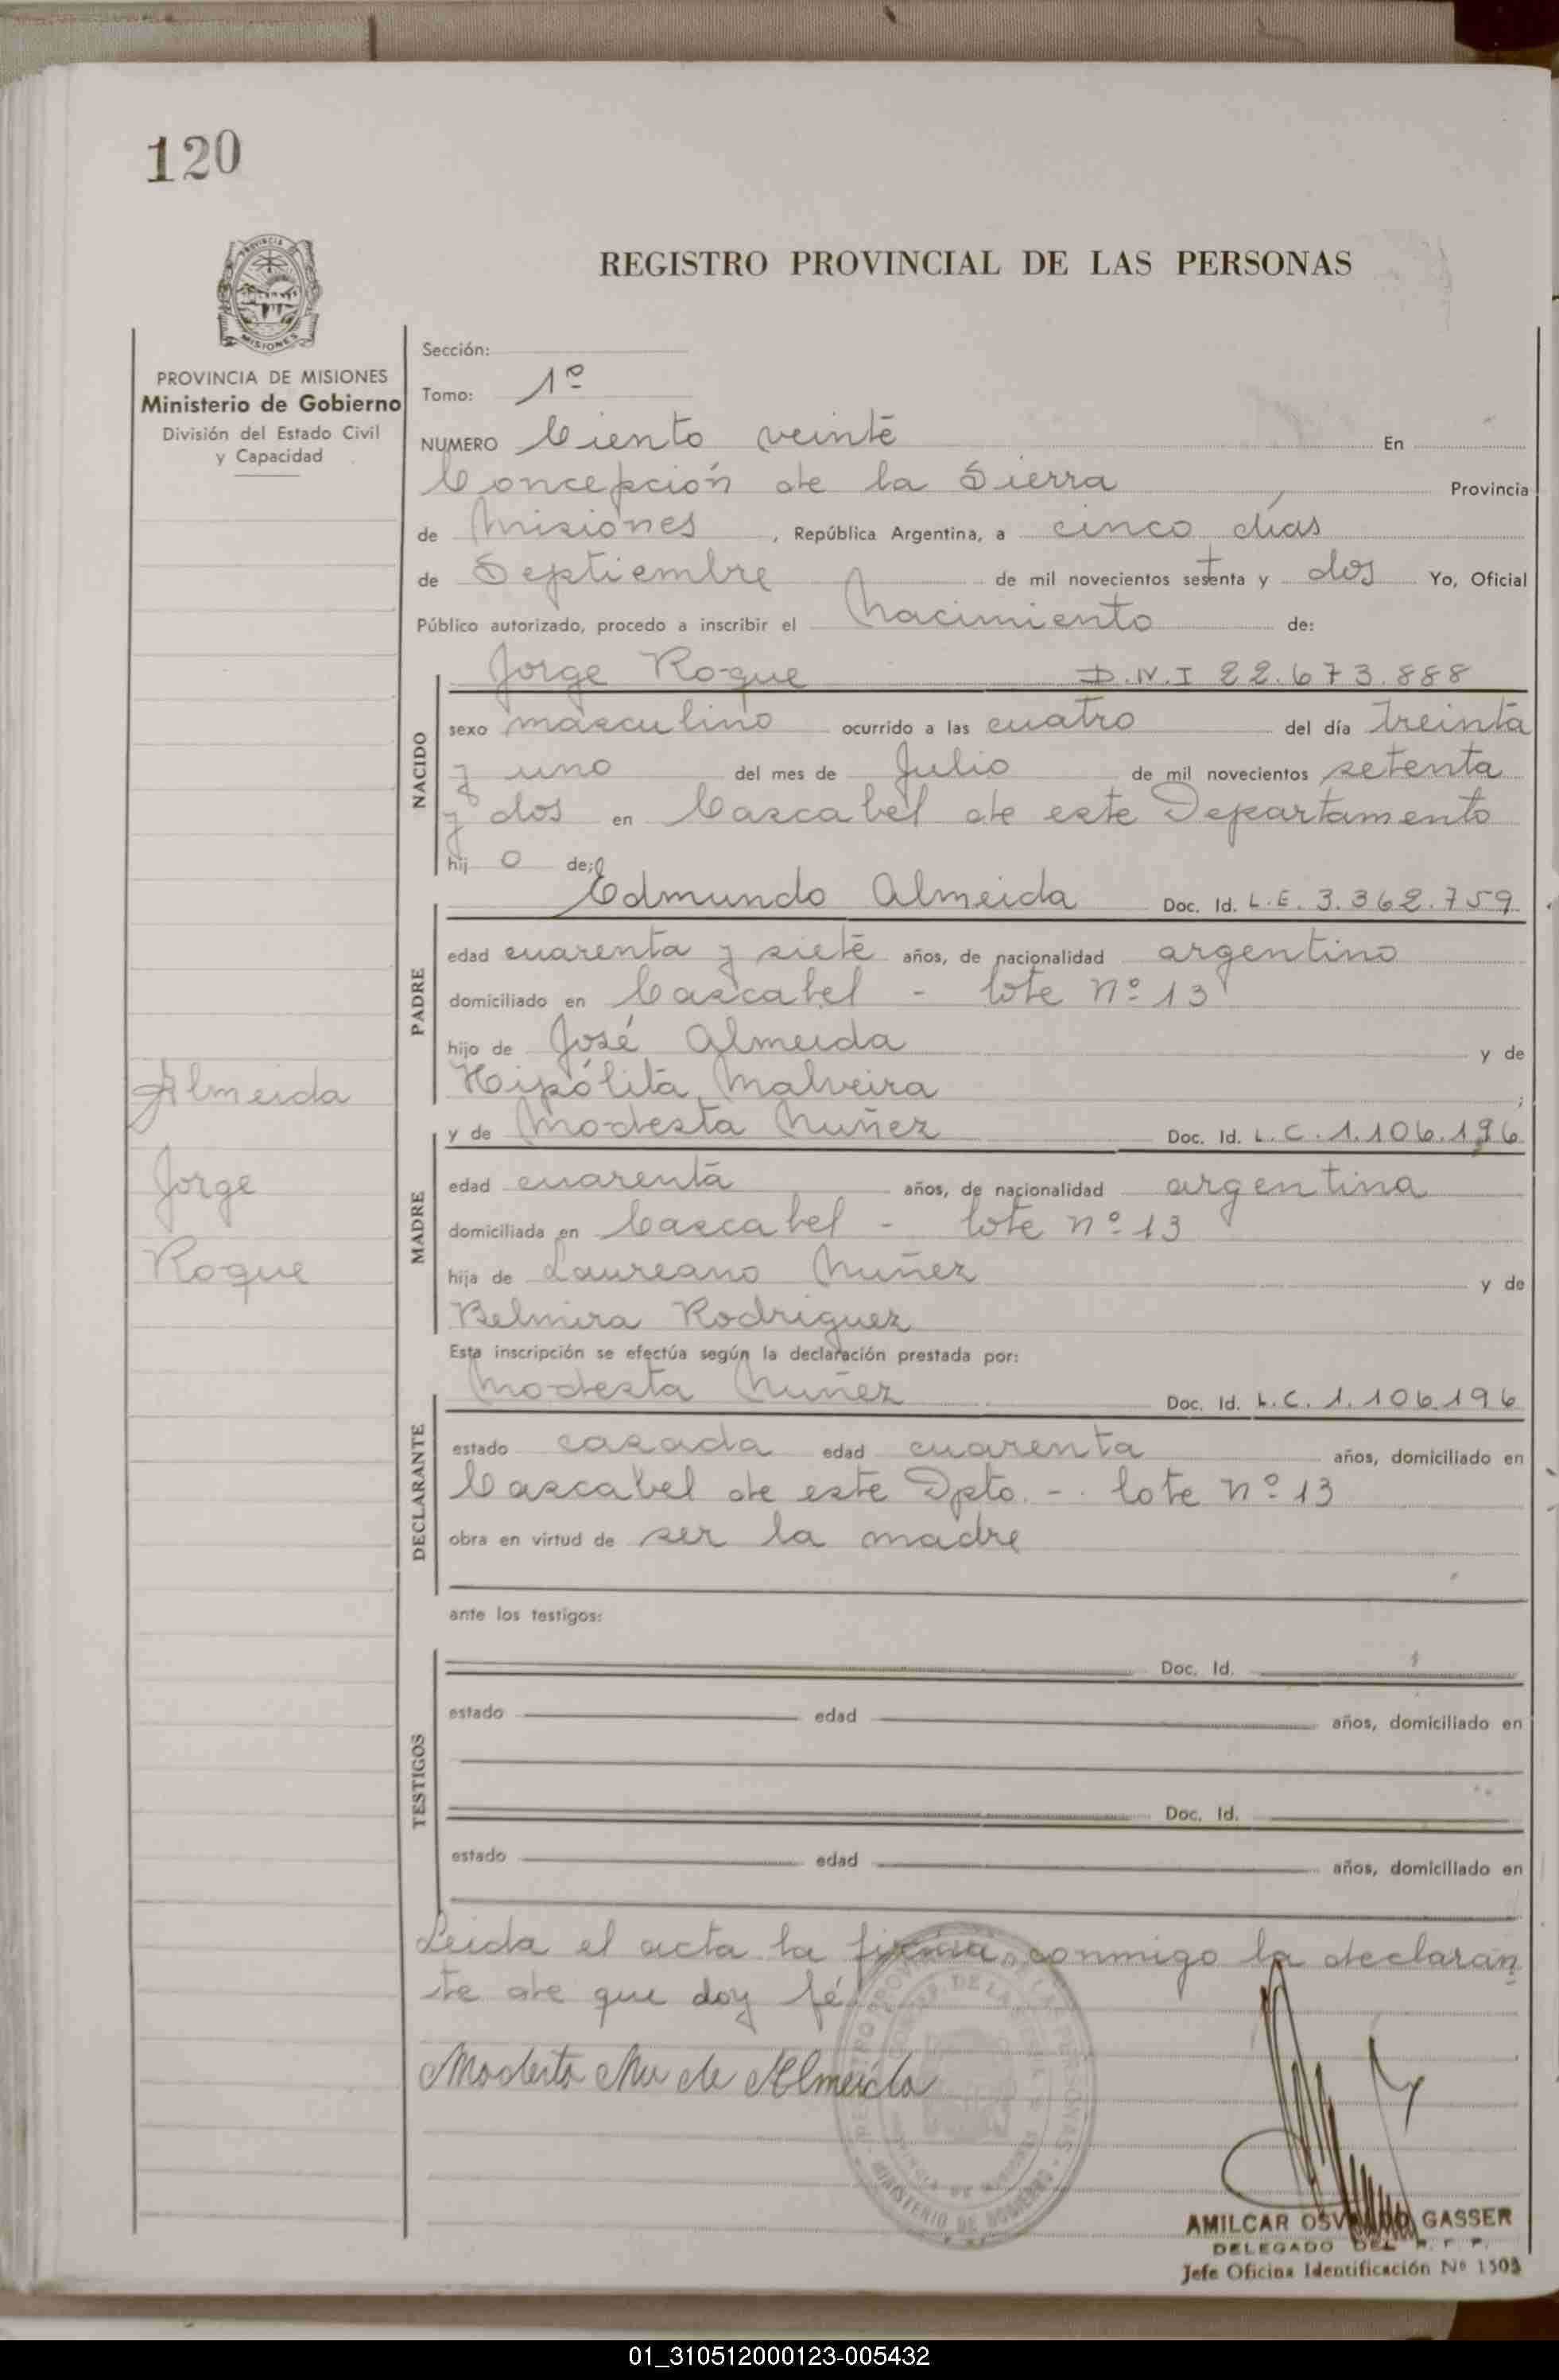 120
PROVINCIA
MISIONES
PROVINCIA DE MISIONES
Ministerio de Gobierno
División del Estado Civil
y Capacidad
Almeida
Jorge
Roque
REGISTRO PROVINCIAL DE LAS PERSONAS
Sección:
Tomo: 1º
NUMERO Ciento veinte En
Concepción de la Sierra Provincia
de Misiones, República Argentina, a cinco días
de Septiembre de mil novecientos setenta y dos Yo, Oficial
Público autorizado, procedo a inscribir el Nacimiento de:
NACIDO
Jorge Roque D.N.I 22.673.888
sexo masculino ocurrido a las cuatro del día treinta
y uno del mes de Julio de mil novecientos setenta
y dos en Cascabel de este Departamento
hij o de:
PADRE
Edmundo Almeida Doc. Id. L.E. 3.362.759
edad cuarenta y siete años, de nacionalidad argentino
domiciliado en Cascabel - lote nº 13
hijo de José Almeida y de
Hipólita Malveira ;
MADRE
y de Modesta Nuñez Doc. Id. L.C. 1.106.196
edad cuarenta años, de nacionalidad argentina
domiciliada en Cascabel - lote nº 13
hija de Laureano Nuñez y de
Belmira Rodriguez
Esta inscripción se efectúa según la declaración prestada por:
DECLARANTE
Modesta Nuñez Doc. Id. L.C. 1.106.196
estado casada edad cuarenta años, domiciliado en
Cascabel de este Dpto. -. lote nº 13
obra en virtud de ser la madre
ante los testigos:
TESTIGOS
Doc. Id.
estado edad años, domiciliado en
Doc. Id.
estado edad años, domiciliado en
Leida el acta la firma conmigo la declaran
te de que doy fé
Modesta Nu de Almeida
MINISTERIO DE GOBIERNO
AMILCAR OSVALDO GASSER
DELEGADO DEL
Jefe Oficina Identificación Nº
01_310512000123-005432